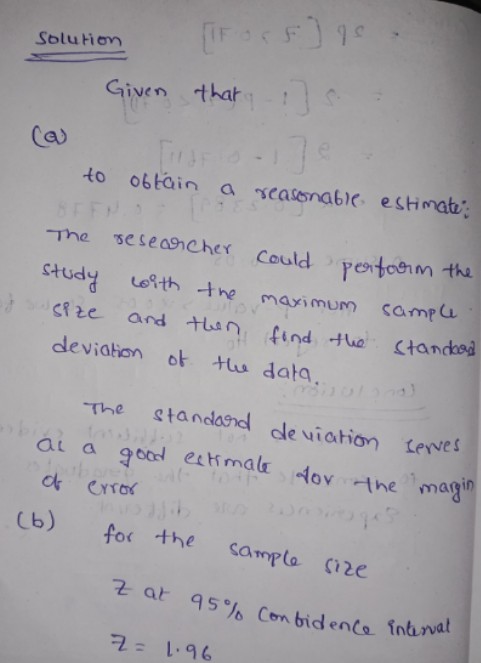 Solution
Given that
(a)
to obtain a reasonable estimate:
The researcher could perform the
study with the maximum sample
size and then, find the standard
deviation of the data.
The standard deviation serves
as a good estimate for the margin
of error
(b)
for the sample size
Z at 95% Confidence interval
Z = 1.96